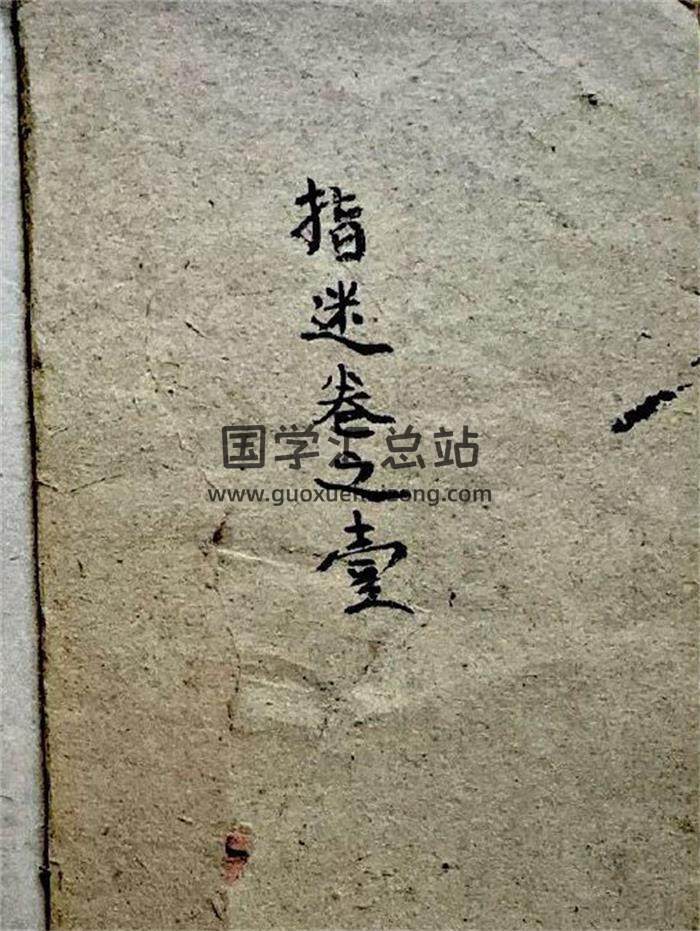 指迷卷之壹
国学汇总站
www.guoxuehuizong.com